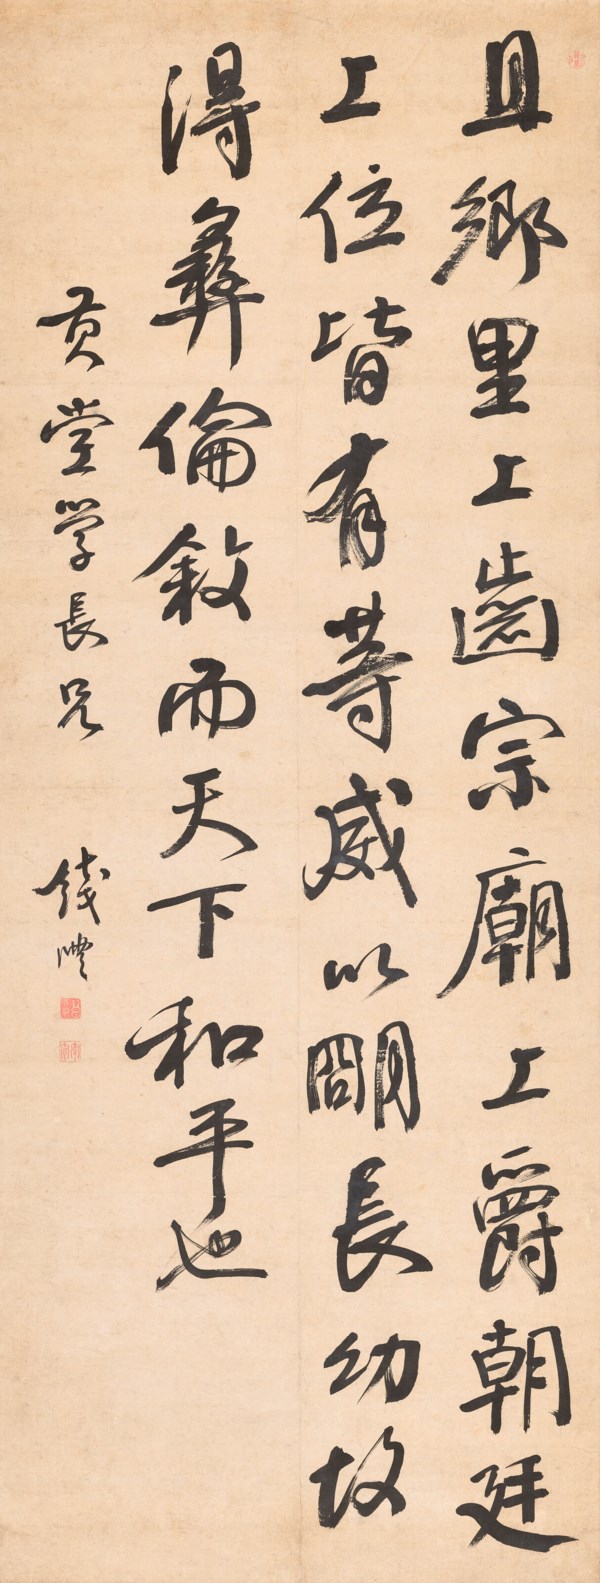 且鄉里上齒宗廟上爵朝廷
上位皆有等威以明長幼故
得彝倫敘而天下和平也
黄堂学長兄
錢灃